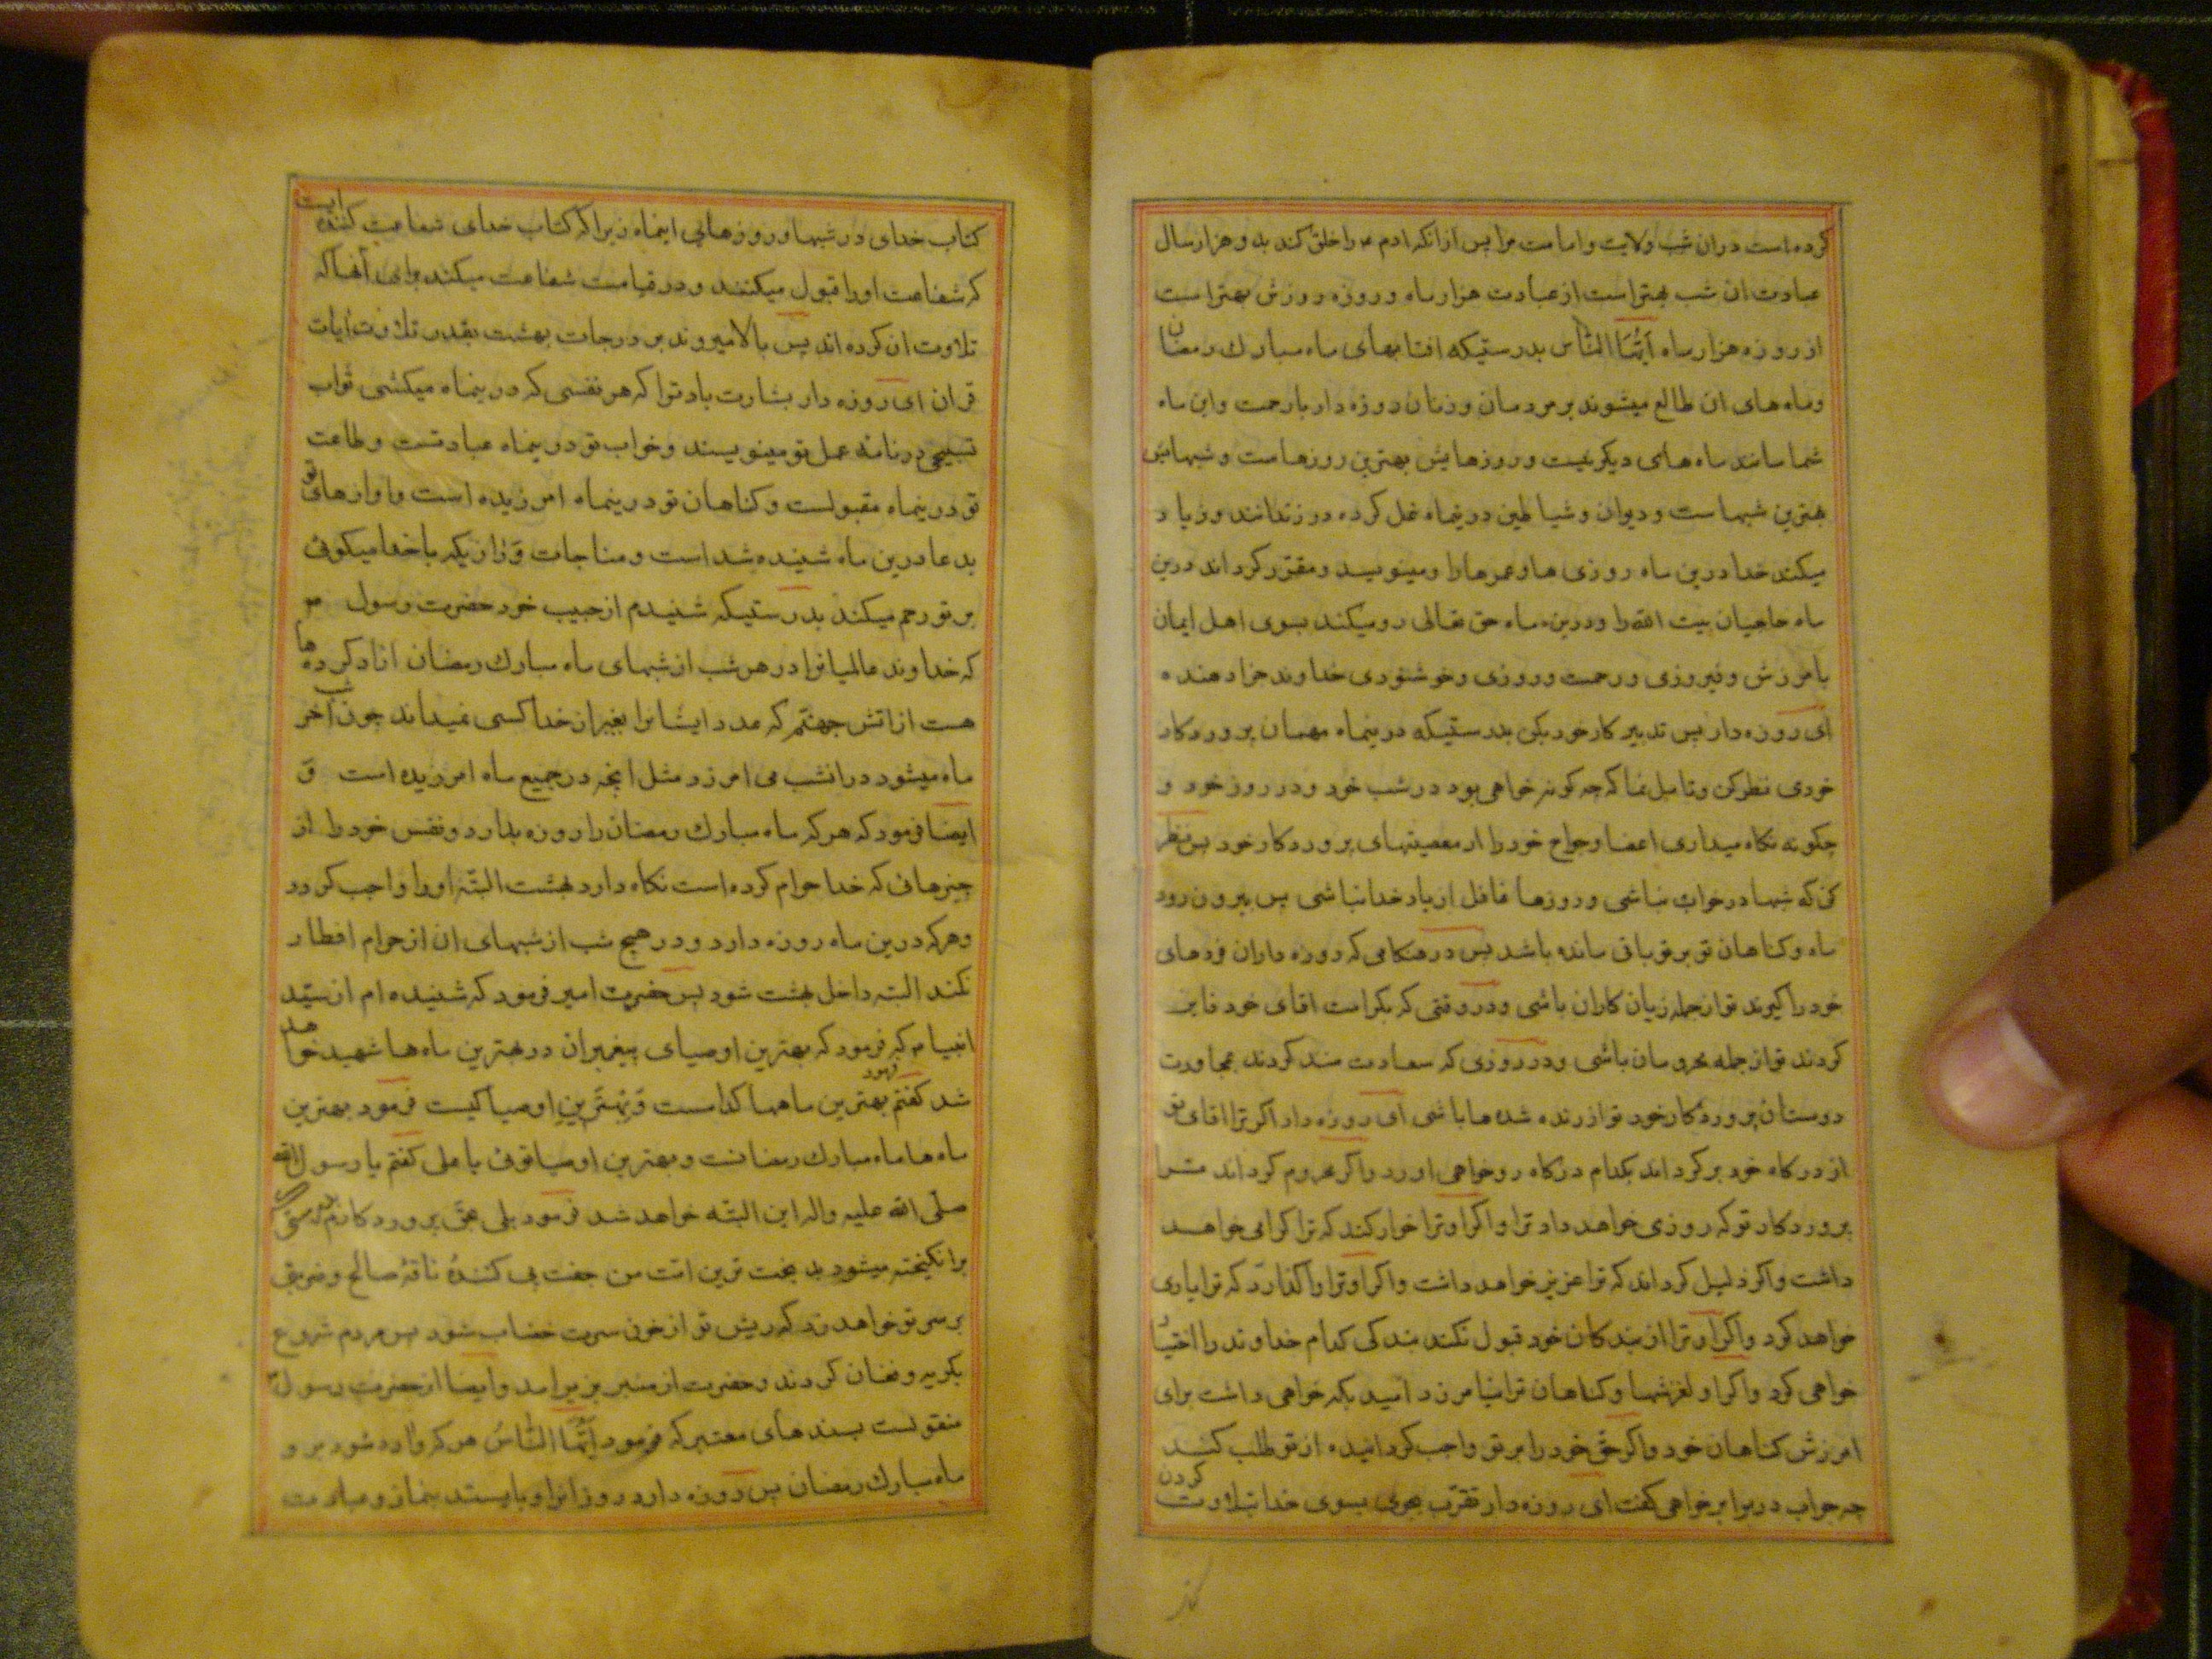 کرده است دران شب ولایت و امامت مرا پس ازانکه ادم ع را خلق کند به و هزار سال
عبادت ان شب بهتر است از عبادت هزار ماه و روزه روزش بهتر است
از روزه هزار ماه اَیُّهَا النّاس بدرستیکه افتابهای ماه مبارك رمضان
و ماه های ان طالع میشوند بر مردمان و زنان روزه دار با رحمت و این ماه
شما مانند ماه های دیکر نیست و روزهایش بهترین روزهاست و شبهایش
بهترین شبهاست و دیوان و شیاطین در ینماه غل کرده در زندانند و زیاد
میکند خدا درین ماه روزی ها و عمرها را و مینویسد و مقرّر کرداند درین
ماه حاجیان بیت الله را و درین ماه حق تعالی رو میکند بسوی اهل ایمان
بامرزش و فیروزی و رحمت و روزی و خوشنودی خداوند جزا دهنده
ای روزه دار پس تدبیر کار خود بکن بدرستیکه در ینماه مهمان پروردکار
خودی نظر کن و تامل نما که چه کونه خواهی بود در شب خود و در روز خود و
چکونه نکاه میداری اعضا و جوارح خود را از معصیتهای پروردکار خود پس نظر
کن که شبها در خواب نباشی و روزها غافل از یاد خدا نباشی پس بیرون رود
ماه و کناهان تو بر تو باقی مانده باشد پس در هنکامی که روزه داران مزدهای
خود را کیرند تو از جمله زیان کاران باشی و در وقتی که بکرامت اقای خود فایز
کردند تو از جمله محرومان باشی و در روزی که سعادت مند کردند بمجاورت
دوستان پروردکار خود تو از رانده شده ها باشی ای روزه دار اکر ترا اقای تو
از درکاه خود بر کرداند بکدام درکاه رو خواهی اورد و اکر محروم کرداند ترا
پروردکار تو که روزی خواهد داد ترا و اکر او ترا خوار کند که ترا کرامی خواهد
داشت و اکر ذلیل کرداند که ترا عزیز خواهد داشت و اکر او ترا واکذارد که ترا یاری
خواهد کرد و اکر او ترا از بندکان خود قبول نکند بندکی کدام خداوند را اختیار
خواهی کرد و اکر او لغزشها و کناهان ترا نیامرزد امید بکه خواهی داشت برای
امرزش کناهان خود و اکر حقّ خود را بر تو واجب کردانیده از تو طلب کند
چه جواب در برابر خواهی کفت ای روزه دار تقرّب بجوی بسوی خدا بتلاوت کردن
کتاب خدای در شبها و روزهایی اینماه زیرا که کتاب خدای شفاعت کننده ایست
که شفاعت او را قبول میکنند و در قیامت شفاعت میکند برای آنها که
تلاوت ان کرده اند پس بالا میروند بر درجات بهشت بقدر تلاوت آیات
قران ای روزه دار بشارت باد ترا که هر نفسی که در ینماه میکشی ثواب
تسبیحی در نامهٔ عمل تو مینویسند و خواب تو در ینماه عبادتست و طاعت
تو در ینماه مقبولست و کناهان تو در ینماه امرزیده است و اوازهای تو
بدعا درین ماه شنیده شد است و مناجات و رازیکه با خدا میکوئی
بر تو رحم میکند بدرستیکه شنیدم از حبیب خود حضرت رسول
که خداوند عالمیانرا در هر شب از شبهای ماه مبارك رمضان ازاد کرده ها
هست از اتش جهنّم که عدد ایشانرا بغیر از خدا کسی نمیداند چون شب آخر
ماه میشود درانشب می امرزد مثل انچه در جمیع ماه امرزیده است و
ایضا فرمود که هر که ماه مبارك رمضان را روزه بدارد و نفس خود را از
چیزهائی که خدا حرام کرده است نکاه دارد بهشت البتّه او را واجب کردد
و هر که درین ماه روزه دارد و در هیچ شب از شبهای ان از حرام افطار
نکند البته داخل بهشت شود پس حضرت امیر فرمود که شنیده ام از سیّد
انبیا که فرمود که بهترین اوصیای پیغمبران در بهترین ماه ها شهید خواهد
شد کفتم بهترین ماهها کدامست و بهترینِ اوصیا کیست فرمود بهترین
ماه ها ماه مبارك رمضانست و بهترین اوصیا توئی یا علی کفتم یا رسول الله
صلّی الله علیه واله این البتّه خواهد شد فرمود بلی بحقّ پروردکارم
برانکیخته میشود بد بخت ترین امّت من جفت پی کنندهٔ ناقهٔ صالح و ضربتی
بر سر تو خواهد زد که ریش تو از خون سرت خضاب شود پس مردم شروع
بکریه و فغان کردند و حضرت از منبر بزیر امد و ایضا از حضرت رسول
منقولست بسندهای معتبر که فرمود اَیُّهَا النّاسُ هر که وارد شود بر و
ماه مبارك رمضان پس روزه دارد روز انرا و بایستد بنماز و عبادت